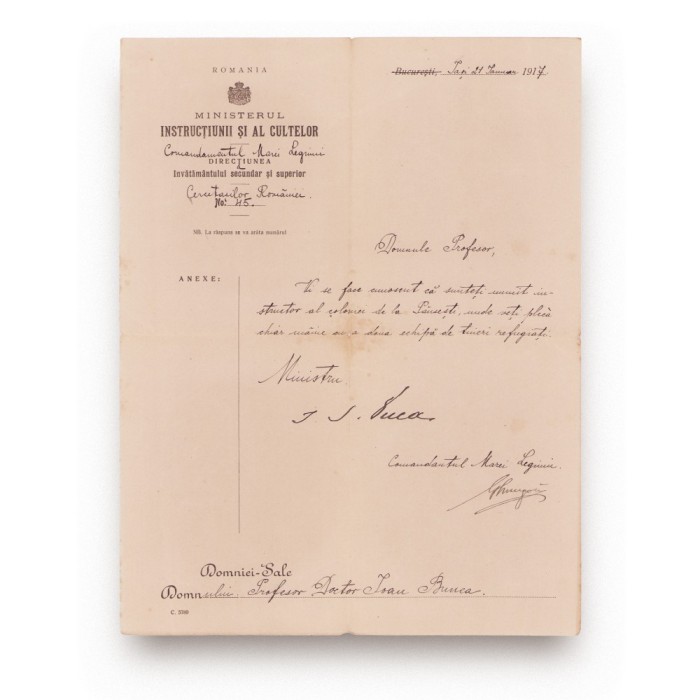 ROMANIA
MINISTERUL
INSTRUCȚIUNII ȘI AL CULTELOR
Comandamentul Marei Legiuni
DIRECȚIUNEA
Invățământului secundar și superior
Cercetașilor României.
No. 45.
NB. La răspuns se va arăta numărul
București, Iași 21 Ianuar 1917
Domnule Profesor,
ANEXE:
Vi se face cunoscut că sunteți numit in-
structor al coloniei de la unde veți pleca
chiar mâine cu a doua echipă de tineri refugiați.
Ministru
Comandantul Marei Legiuni.
Domniei-Sale
Domnului Profesor Doctor Ioan
C. 5798